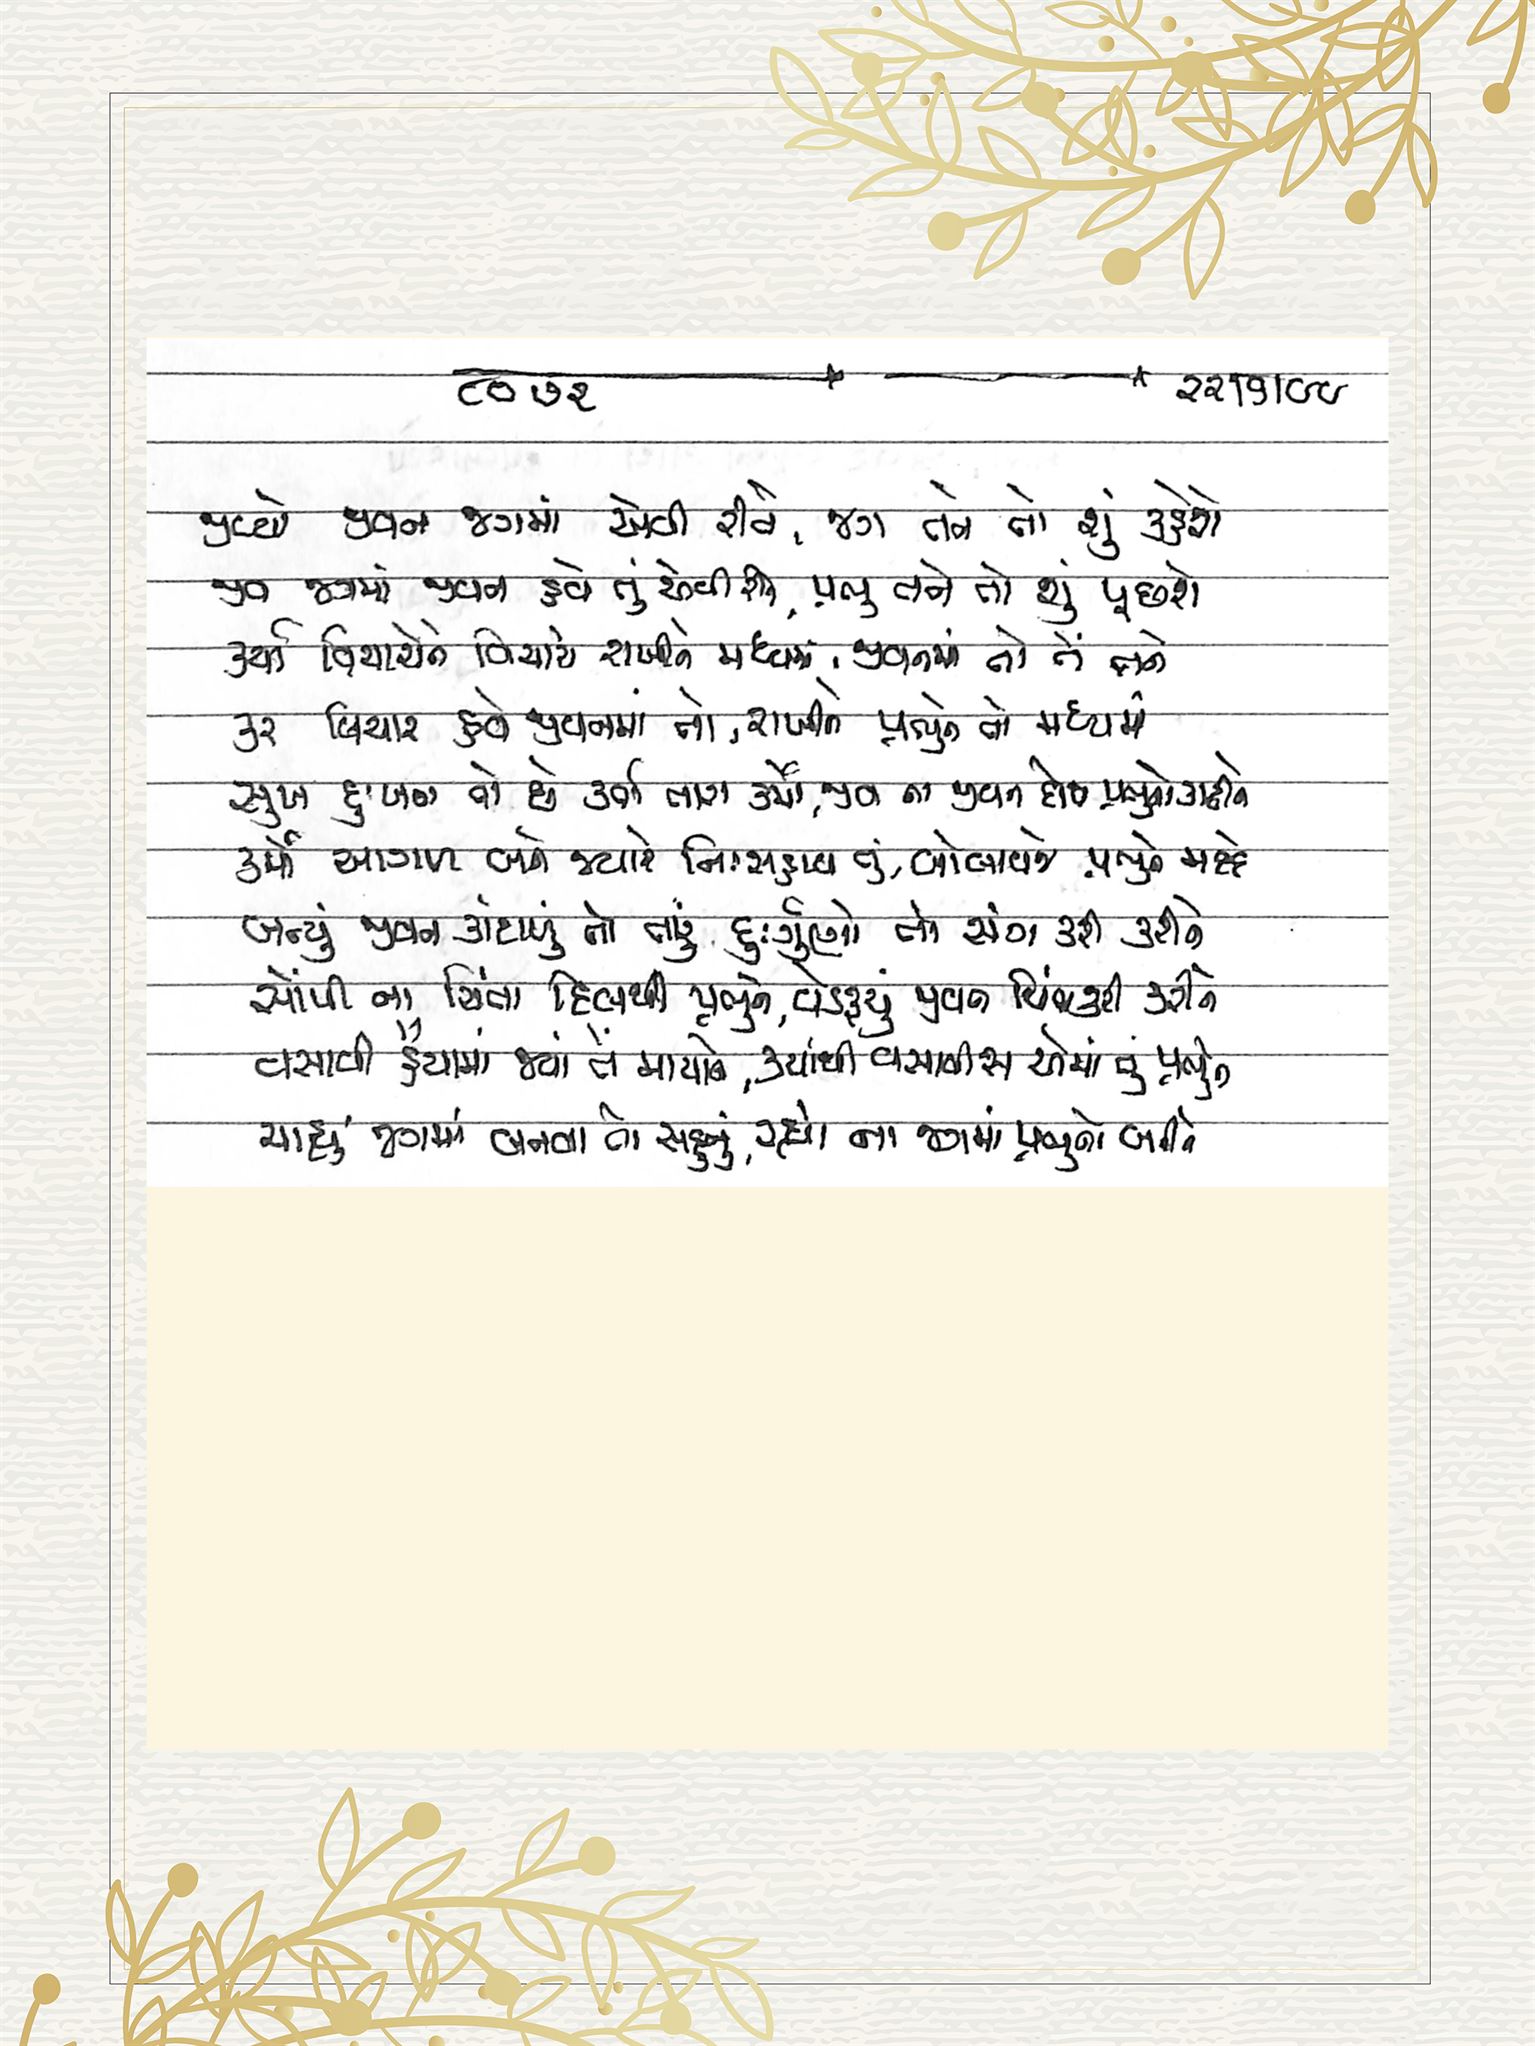 ૮૦૭૨ ૨૨।૭।૯૯
જીવ્યો જીવન જગમાં એવી રીતે, જગ તને તો શું કહેશે
જીવ જગમાં જીવન હવે તું એવી રીતે, પ્રભુ તને તો શું પૂછશે
કર્યા વિચારોને વિચારો રાખીને મધ્યમાં, જીવનમાં તો તેં તને
કર વિચાર હવે જીવનમાં તો, રાખીને પ્રભુને તો મધ્યમાં
સુખ દુઃખના તો છે કર્તા તારા કર્મો, જીવ ના જીવન દોષ પ્રભુનો કાઢીને
કર્મો આગળ બને જ્યારે નિઃસહાય તું, બોલાવજે પ્રભુને મદદે
બન્યું જીવન કાંટાળું તો તારું દુઃર્ગુણો નો સંગ કરી કરીને
સોંપી ના ચિંતા દિલથી પ્રભુને, વેડફ્યું જીવન ચિંતા કરી કરીને
વસાવી હૈયામાં જ્યાં તેં માયાને, ક્યાંથી વસાવીશ એમાં તું પ્રભુને
ચાહ્યું જગમાં બનવા તો સહુનું, રહ્યો ના જગમાં પ્રભુનો બનીને